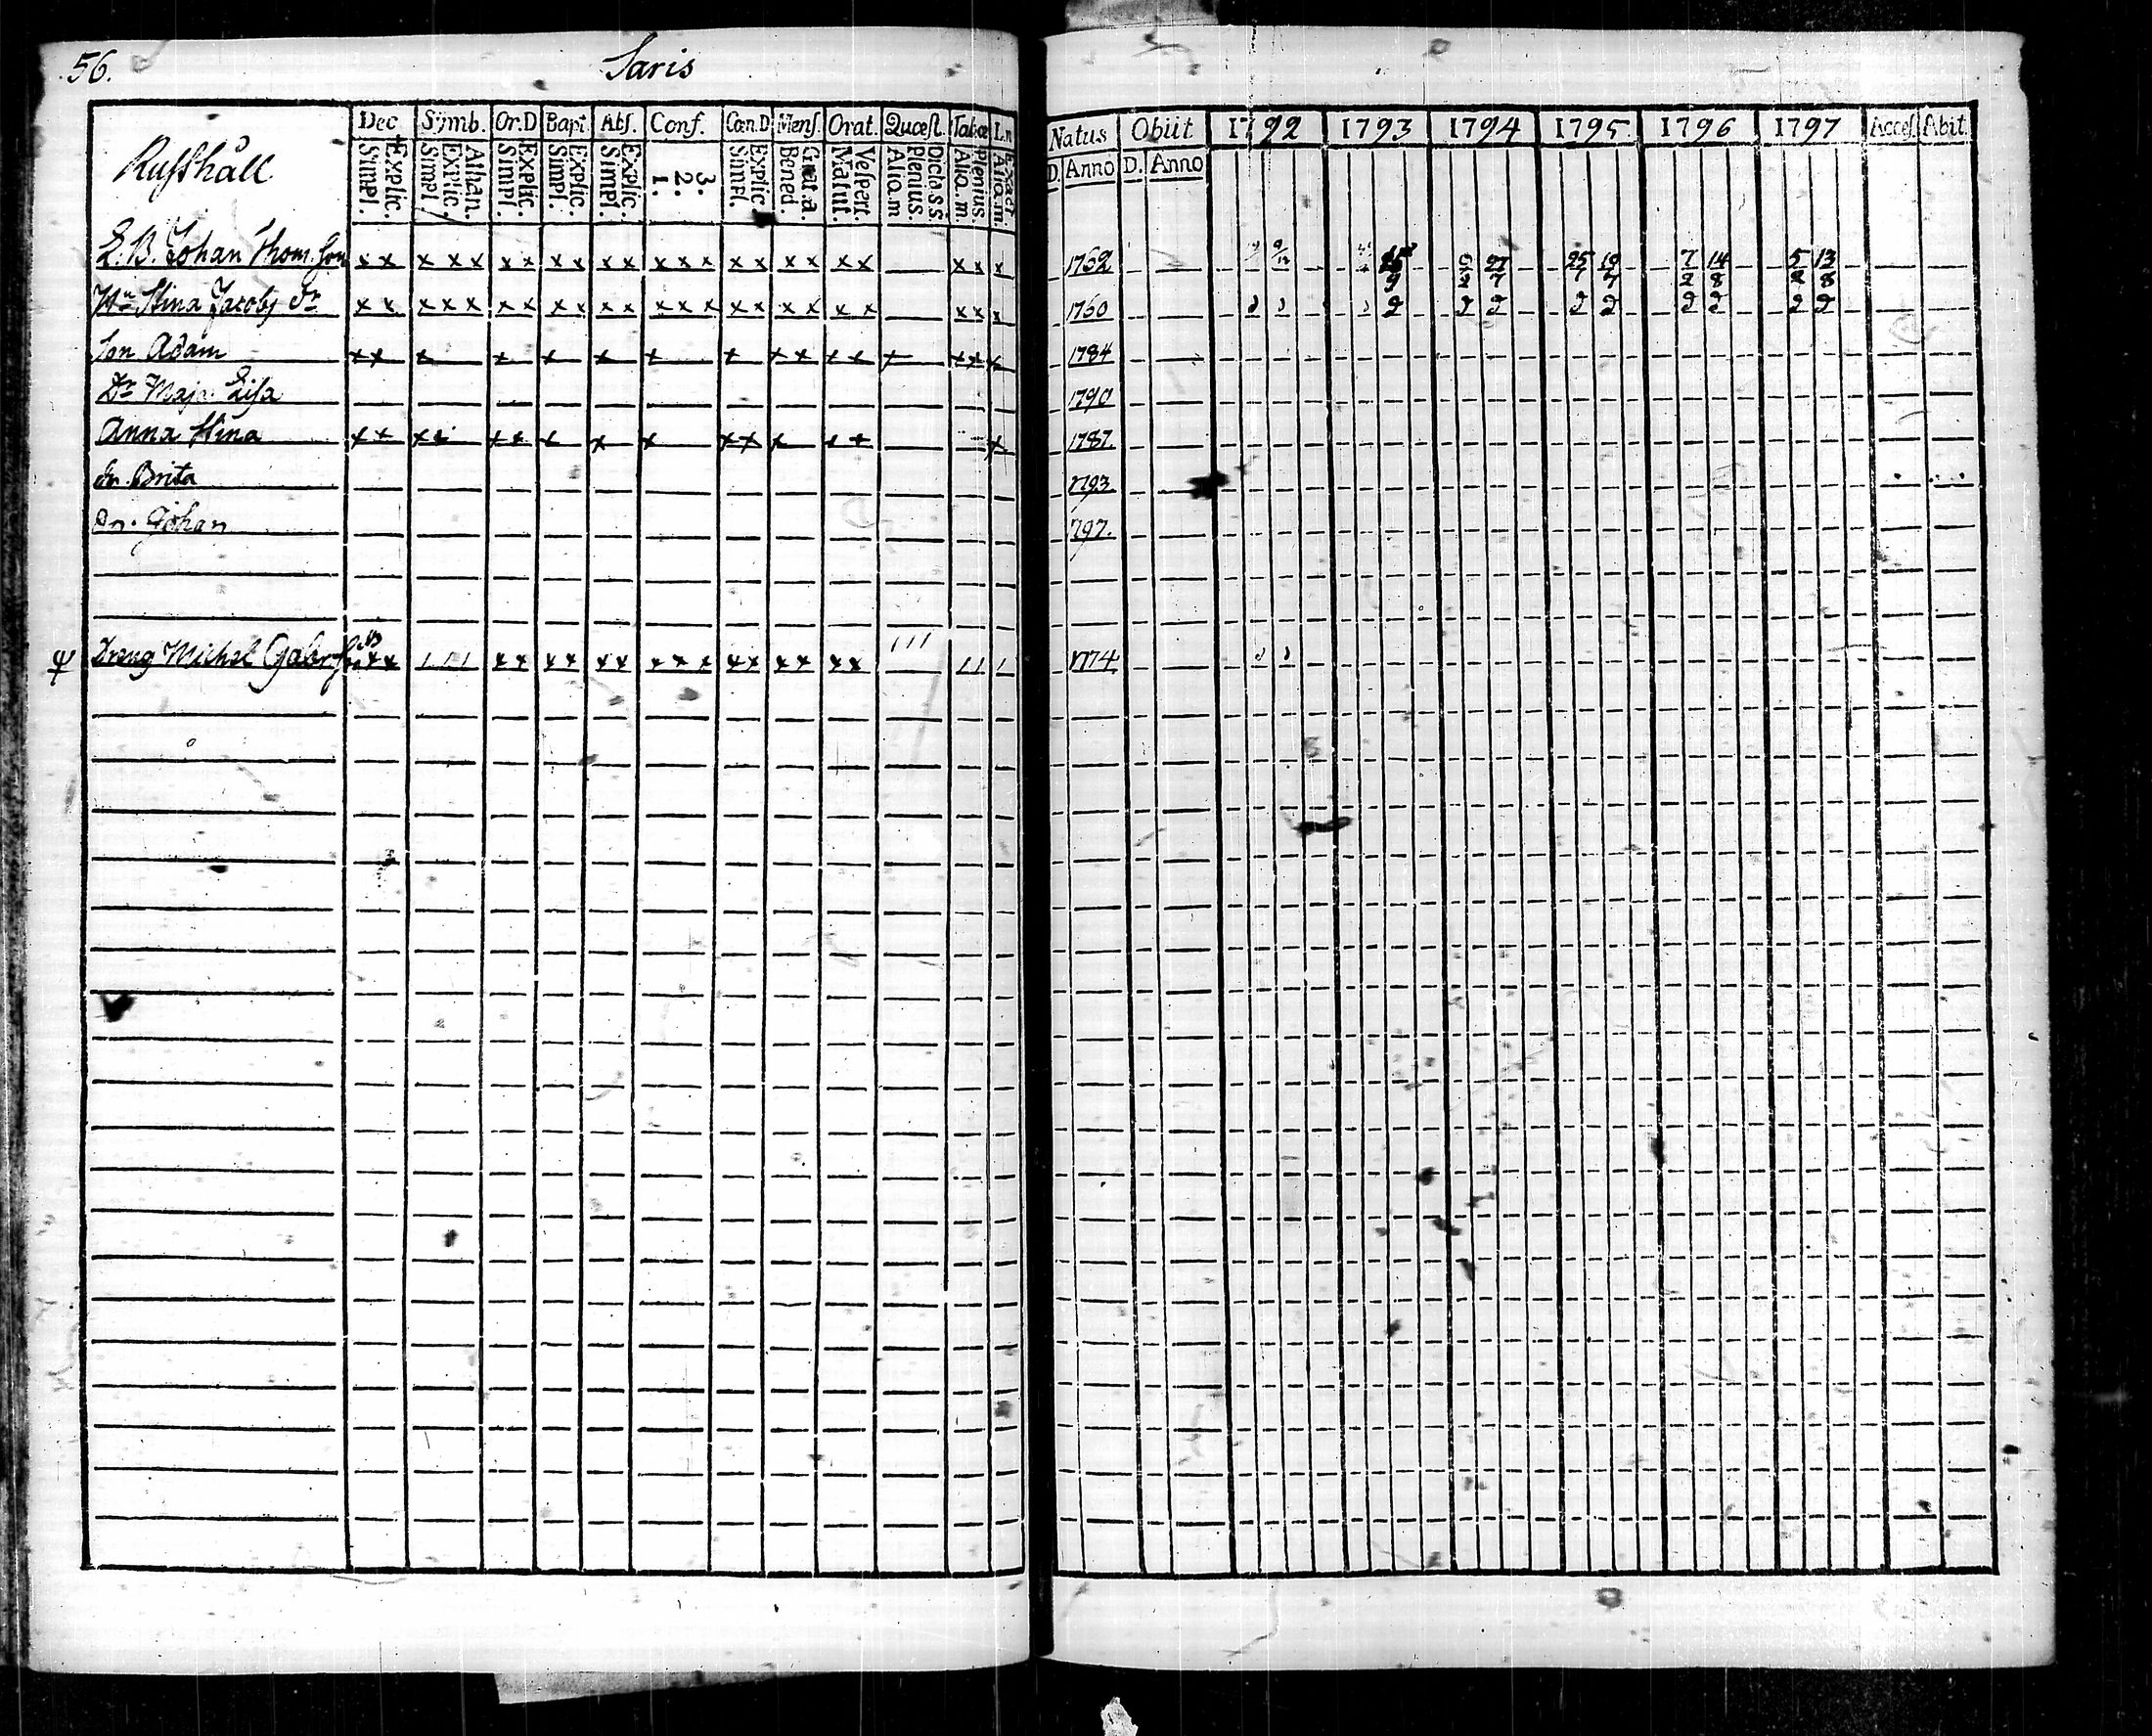 56. Saris
Dec Symb. Or.D Bapt. Abs. Conf. Cœn.D Mens. Orat. Quæst. Tabœ
Simpl. Explic. Simpl. Explic. Athan. Simpl. Explic. Simpl. Explic. Simpl. Explic. 1. 2. 3. Simpl. Explic. Bened. Grat. a. Matut. Vespert. Alia. m Plenius. Dicta s.s. Alia. m. Plenius. Alia. m. Exact
Natus Obiit 1792 1793 1794 1795 1796 1797 Acces. Abit.
D. Anno D. Anno
Russhåll
L. B. Johan Thom. Son x x x x x x x x x x x x x x x x x x x x x x x 1762 25 9 27 25 19 7 14 5 13
9 2 7 7 7 2 8 2 8
Hu Stina Jacobs Dr x x x x x x x x x x x x x x x x x x x x x x x 1760 2 2 2 2 2 2 2 2 2
Son Adam x x x x x x x x x x x x x x x x 1784
Dr Maja Lisa 1790
Anna Stina x x x x x x x x x x x x x x x 1787.
Dr. Brita 1793
Sn. Johan 797.
Dreng Michel Gabr. x x x x x x x x x x x x x x x x x 1774